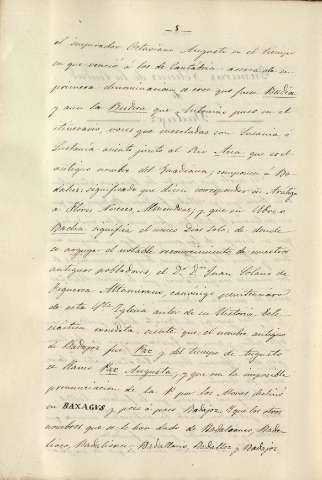 - 5 -
el emperador Octaviano Augusto en el tiempo
en que venció á los de Cantabria: acerca de su
primera denominacion se cree que fuese Badia
y aun la Budua que Antonino puso en el
itinerario, voces que mezcladas con
Lusitania asiento junto al Rio Ana que es el
antiguo nombre del Guadiana, componen á Ba-
dalia: significado que dicen corresponder en Arabigo
á Flores Nueces, Almendras; y que en Hebreo
Badia significa el unico Dios solo; de donde
se arguye el notable reconocimiento de nuestros
antiguos pobladores, el D.r D.n Juan Solano de
Figueroa Altamirano, canonigo penitenciario
de esta S.ta Iglesia autor de su Historia Ecle-
siástica inedita, siente que, el nombre antiguo
de Badajoz fue Pax y del tiempo de Augusto
se llamó Pax Augusta, y que en la imposible
pronunciacion de la P por los Moros
en BAXAGUS y poco á poco Badajoz. Que los otros
nombres que se le han dado de Badaloanco, Bada-
lioco, Badalianco, Badallano, Badalloz y Badajoz